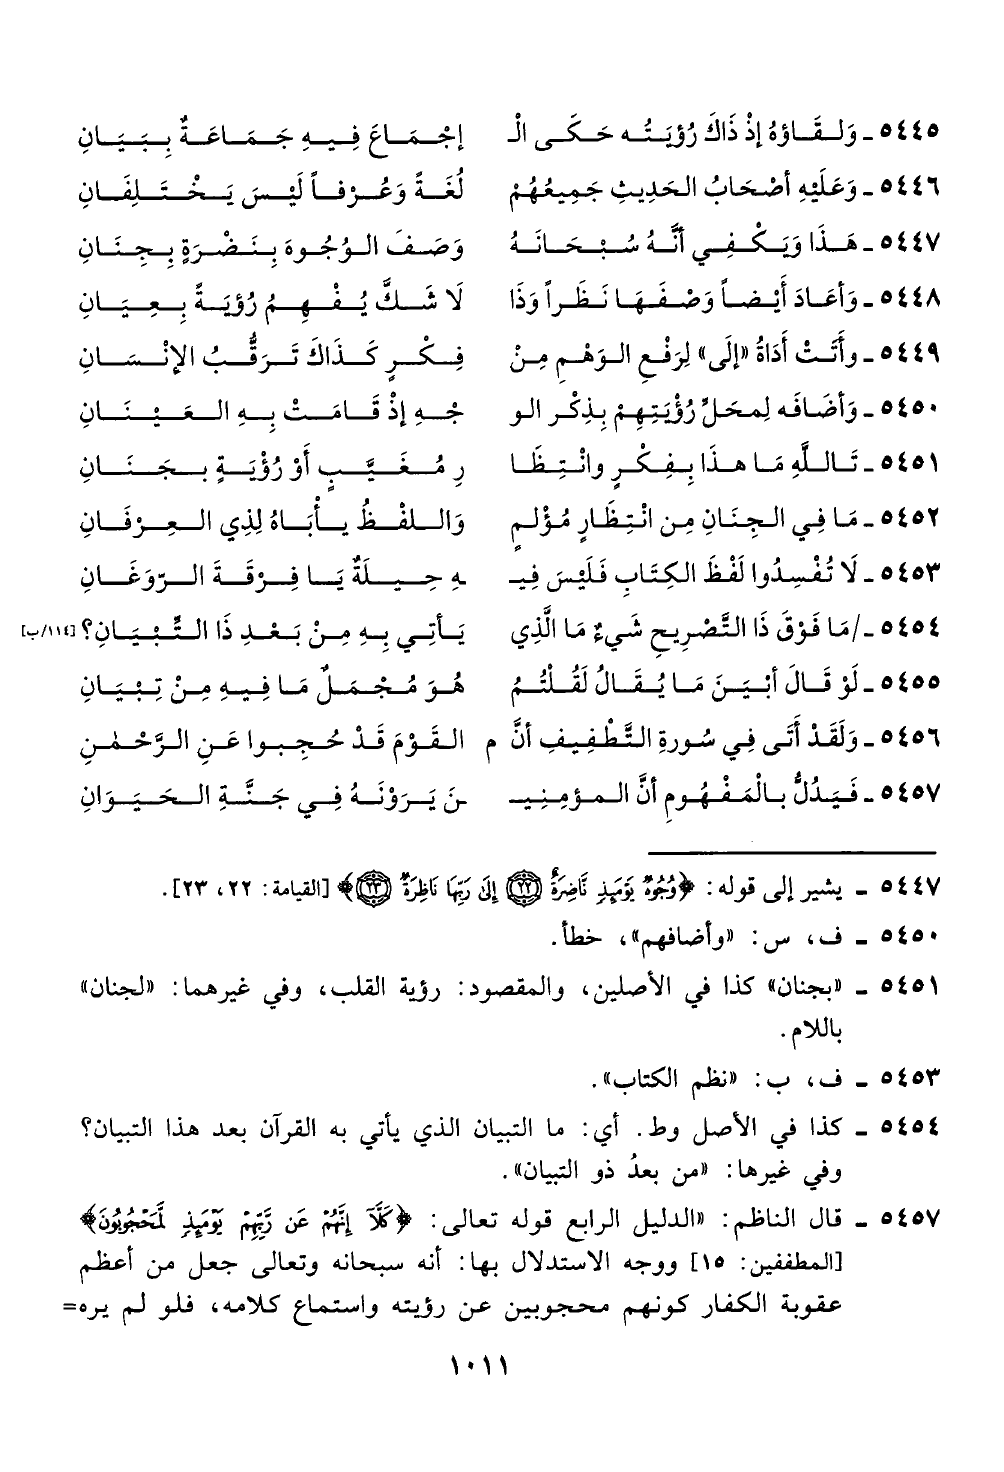 ٥٤٤٥ ـ وَلِقَاؤهُ إذْ ذَاكَ رُؤيَتُه حَكَى الْـ إجْمَاعَ فِيهِ جَمَاعَةٌ بِبَيَانِ
٥٤٤٦ ـ وَعَلَيهِ أصْحَابُ الحَدِيثِ جَمِيعُهُمْ لُغَةً وَعُرْفاً لَيْسَ يَخْتَلِفَانِ
٥٤٤٧ ـ هَذَا وَيَكْفِي أنَّهُ سُبْحَانَهُ وَصَفَ الوُجُوهَ بِنَضْرَةٍ بِجِنَانِ
٥٤٤٨ ـ وَأعَادَ أَيْضاً وَصْفَهَا نَظَراً وَذَا لَا شَكَّ يُفْهِمُ رُؤيَةً بِعِيَانِ
٥٤٤٩ ـ وأَتَتْ أدَاةُ «إلَى» لِرَفْعِ الوَهْمِ مِنْ فِكْرٍ كَذَاكَ تَرَقُّبُ الإنْسَانِ
٥٤٥٠ ـ وَأضَافَه لِمحَلِّ رُؤْيَتِهِمْ بِذِكْرِ الو جْهِ إذْ قَامَتْ بِهِ العَيْنَانِ
٥٤٥١ ـ تَاللَّهِ مَا هذَا بِفِكْرٍ وانْتِظَا رِ مُغَيَّبٍ أَوْ رُؤْيَةٍ بِجَنَانِ
٥٤٥٢ ـ مَا فِي الجِنَانِ مِن انْتِظَارٍ مُؤْلمٍ وَاللفْظُ يأْبَاهُ لِذِي العِرْفَانِ
٥٤٥٣ ـ لَا تُفْسِدُوا لَفْظَ الكِتَابِ فَلَيْسَ فِيـ ـهِ حِيلَةٌ يَا فِرْقَةَ الرّوَغَانِ
٥٤٥٤ ـ /مَا فَوْقَ ذَا التَّصْرِيحِ شَيءٌ مَا الَّذِي يَأتِي بِهِ مِنْ بَعْدِ ذَا التِّبْيَانِ؟ [١١٤/ب]
٥٤٥٥ ـ لَوْ قَالَ أبْيَنَ مَا يُقَالُ لَقُلْتُمُ هُوَ مُجْمَلٌ مَا فِيهِ مِنْ تِبْيَانِ
٥٤٥٦ ـ وَلَقَدْ أَتَى فِي سُورةِ التَّطْفِيفِ أنَّ م القَوْمَ قَدْ حُجِبوا عَنِ الرَّحْمٰنِ
٥٤٥٧ ـ فَيَدُلُّ بالْمَفْهُومِ أنَّ المؤمِنِيـ ـنَ يَرَوْنَهُ فِي جَنَّةِ الحَيَوَانِ
٥٤٤٧ ـ يشير إلى قوله: ﴿وُجُوهٌ يَوْمَئِذٍ نَّاضِرَةٌ ٢٢ إِلَىٰ رَبِّهَا نَاظِرَةٌ ٢٣﴾ [القيامة: ٢٢، ٢٣].
٥٤٥٠ ـ ف، س: «وأضافهم»، خطأ.
٥٤٥١ ـ «بجنان» كذا في الأصلين، والمقصود: رؤية القلب، وفي غيرهما: «لجنان»
باللام.
٥٤٥٣ ـ ف، ب: «نظم الكتاب».
٥٤٥٤ ـ كذا في الأصل وط. أي: ما التبيان الذي يأتي به القرآن بعد هذا التبيان؟
وفي غيرها: «من بعدُ ذو التبيان».
٥٤٥٧ ـ قال الناظم: «الدليل الرابع قوله تعالى: ﴿كَلَّآ إِنَّهُمْ عَن رَّبِّهِمْ يَوْمَئِذٍ لَّمَحْجُوبُونَ﴾
[المطففين: ١٥] ووجه الاستدلال بها: أنه سبحانه وتعالى جعل من أعظم
عقوبة الكفار كونهم محجوبين عن رؤيته واستماع كلامه، فلو لم يره=
١٠١١